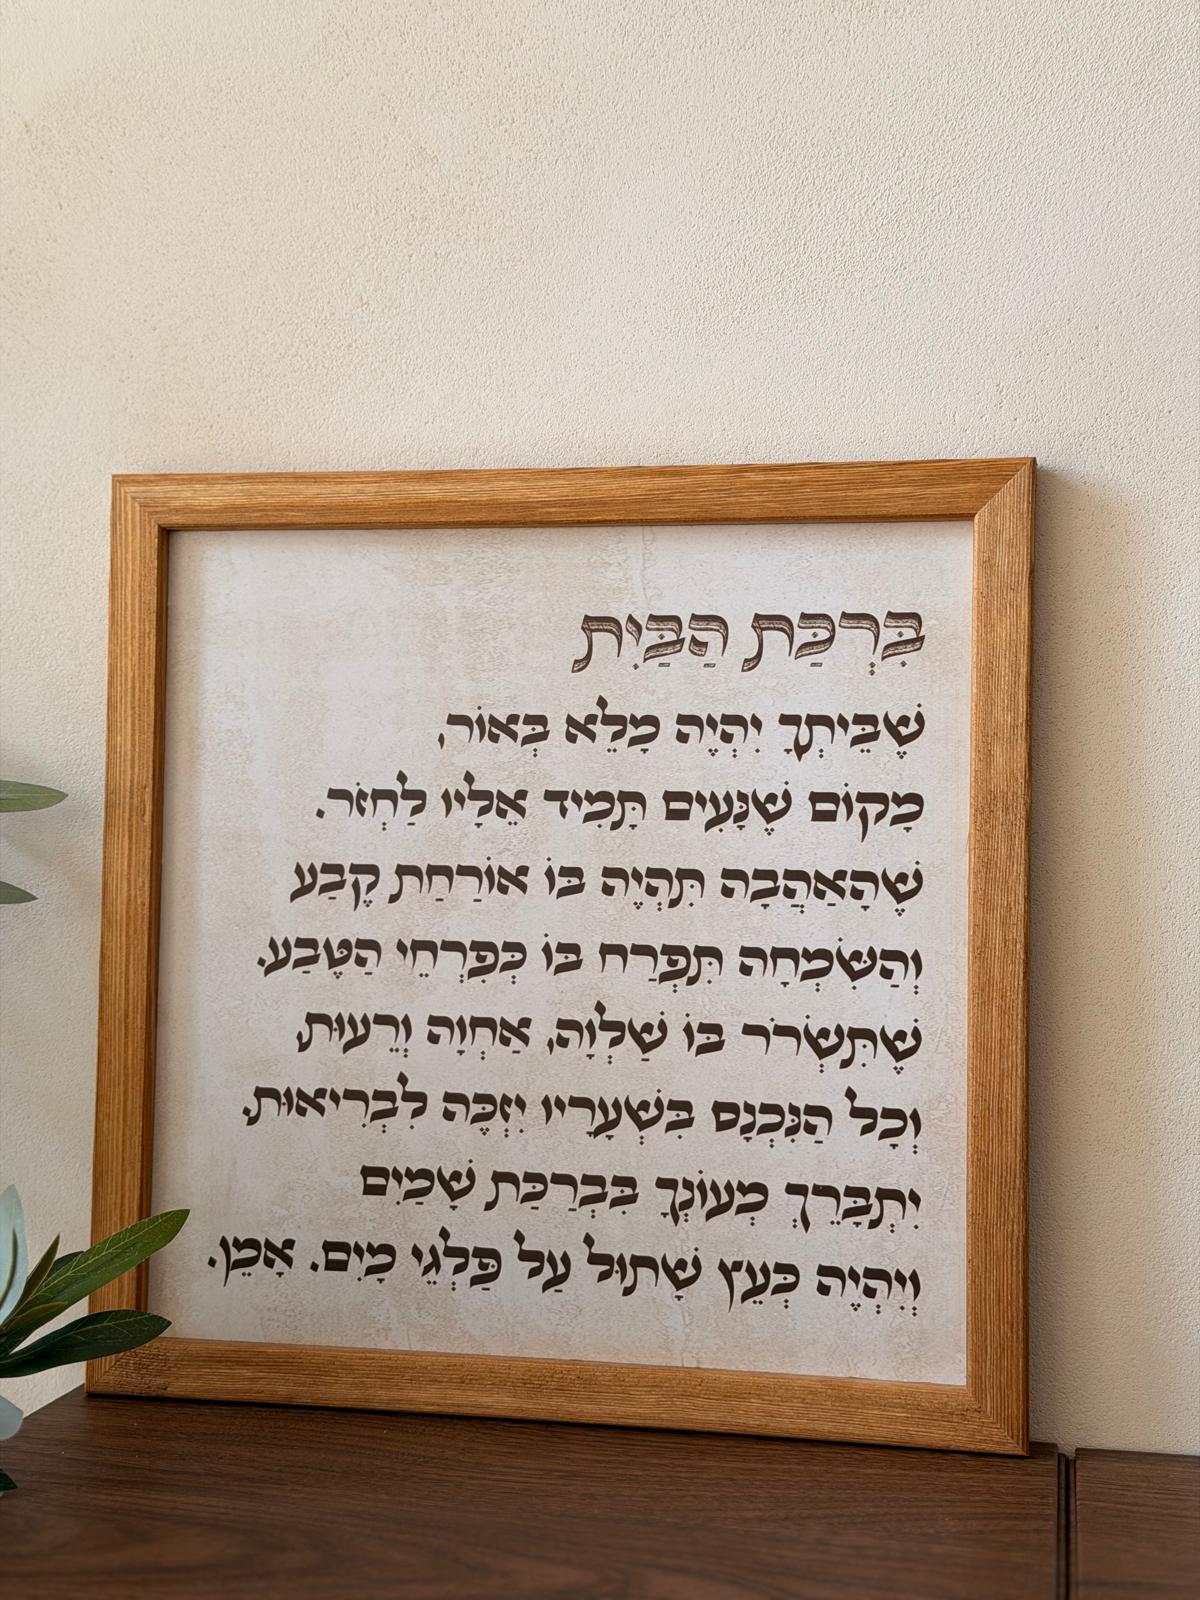 בִּרְכַּת הַבַּיִת
שֶׁבֵּיתְךָ יִהְיֶה מָלֵא בְּאוֹר,
מָקוֹם שֶׁנָּעִים תָּמִיד אֵלָיו לַחְזֹר.
שֶׁהָאַהֲבָה תִּהְיֶה בּוֹ אוֹרַחַת קֶבַע
וְהַשִּׂמְחָה תִּפְרַח בּוֹ כְּפִרְחֵי הַטֶּבַע.
שֶׁתִּשְׂרֹר בּוֹ שַׁלְוָה, אַחְוָה וְרֵעוּת,
וְכָל הַנִּכְנָס בִּשְׁעָרָיו יִזְכֶּה לִבְרִיאוּת.
יִתְבָּרֵךְ מְעוֹנְךָ בִּבְרַכַּת שָׁמַיִם
וְיִהְיֶה כְּעֵץ שָׁתוּל עַל פַּלְגֵי מָיִם. אָמֵן.